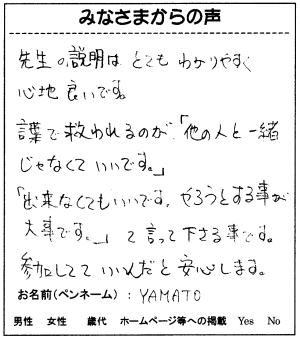 みなさまからの声
先生の説明は とても わかりやすく
心地良いです。
言葉で救われるのが、「他の人と一緒
じゃなくていいです。」
「出来なくてもいいです。やろうとする事が
大事です。」 て言って下さる事です。
参加してて いいんだと安心します。
お名前(ペンネーム) : YAMATO
男性 女性 歳代 ホームページ等への掲載 Yes No